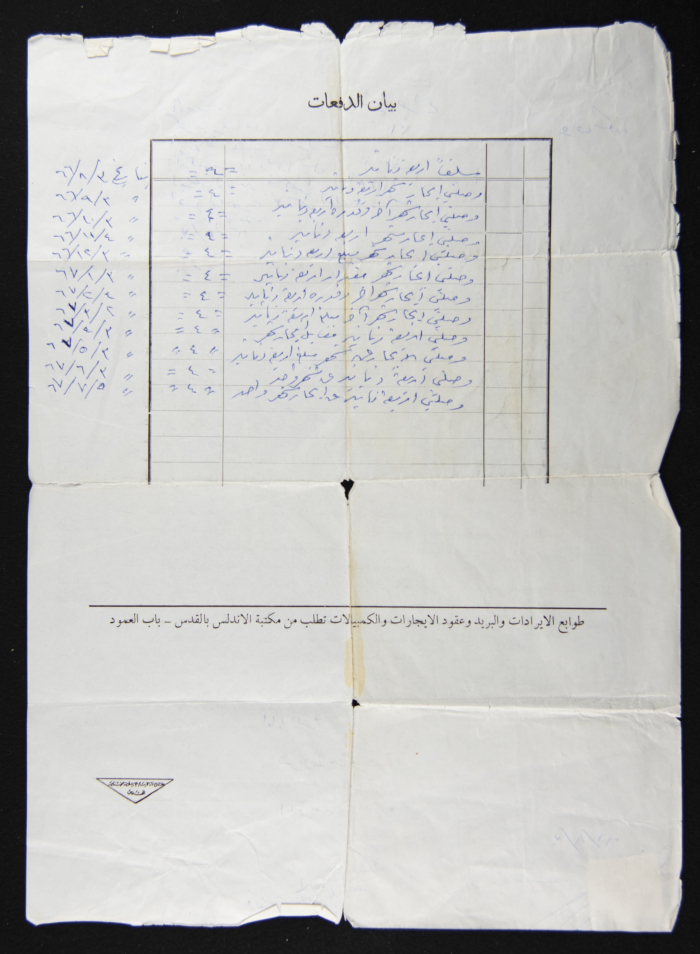 بيان الدفعات
سلفاً اربعة دنانير = ٤ = بتاريخ ٦٦/٨/٣
وصلني ايجار شهر اربعة دنانير = ٤ = " ٦٦/٩/٣
وصلني ايجار شهر آخر وقدره اربعة دنانير = ٤ = " ٦٦/١٠/٣
وصلني ايجار شهر اربعة دنانير = ٤ = " ٦٦/١١/٤
وصلني ايجار شهر مبلغ اربعة دنانير = ٤ = " ٦٦/١٢/٣
وصلني ايجار شهر مقدار اربعة دنانير = ٤ = " ٦٧/١/٣
وصلني ايجار شهر آخر وقدره اربعة دنانير = ٤ = " ٦٧/٢/٤
وصلني ايجار شهر آخر مبلغ اربعة دنانير = ٤ = " ٦٧/٣/٢
وصلني اربعة دنانير مقابل ايجار شهر = ٤ = " ٦٧/٤/٣
وصلني الايجار عن شهر مبلغ اربعة دنانير " ٤ " " ٦٧/٥/٣
وصلني اربعة دنانير عن شهر واحد = ٤ " " ٦٧/٦/٣
وصلني اربعة دنانير عن ايجار شهر واحد " ٤ " " ٦٧/٧/٥
طوابع الايرادات والبريد وعقود الايجارات والكمبيالات تطلب من مكتبة الاندلس بالقدس – باب العمود